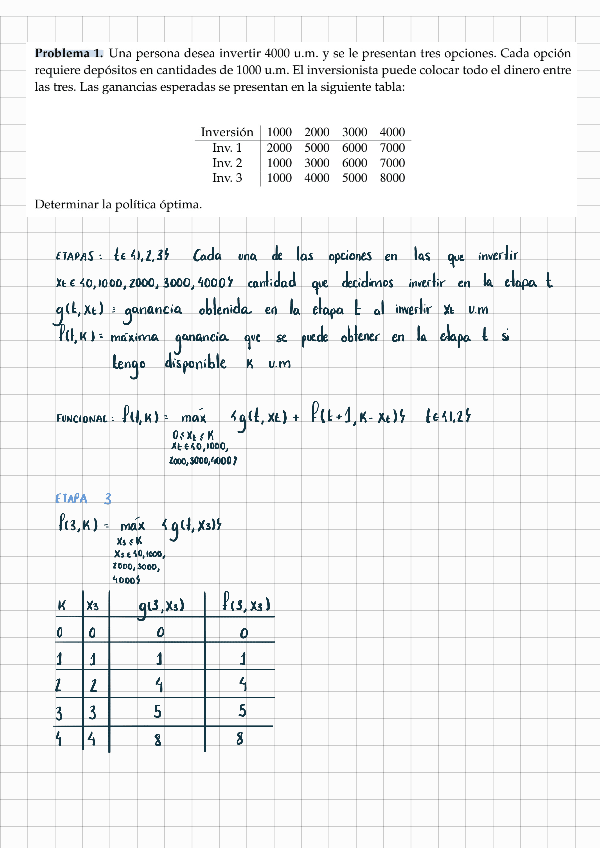 Problema 1. Una persona desea invertir 4000 u.m. y se le presentan tres opciones. Cada opción
requiere depósitos en cantidades de 1000 u.m. El inversionista puede colocar todo el dinero entre
las tres. Las ganancias esperadas se presentan en la siguiente tabla:
Inversión 1000 2000 3000 4000
Inv. 1 2000 5000 6000 7000
Inv. 2 1000 3000 6000 7000
Inv. 3 1000 4000 5000 8000
Determinar la política óptima.
ETAPAS: t∈{1,2,3} Cada una de las opciones en las que invertir
xt∈{0,1000,2000,3000,4000} cantidad que decidimos invertir en la etapa t
g(t,xt) = ganancia obtenida en la etapa t al invertir xt u.m
f(t,K) = máxima ganancia que se puede obtener en la etapa t si
tengo disponible K u.m
FUNCIONAL: f(t,K) = máx {g(t,xt) + f(t+1,K-xt)} t∈{1,2}
0≤xt≤K
xt∈{0,1000,
2000,3000,4000}
ETAPA 3
f(3,K) = máx {g(t,x3)}
x3≤K
x3∈{0,1000,
2000,3000,
4000}
K x3 g(3,x3) f(3,x3)
0 0 0 0
1 1 1 1
2 2 4 4
3 3 5 5
4 4 8 8